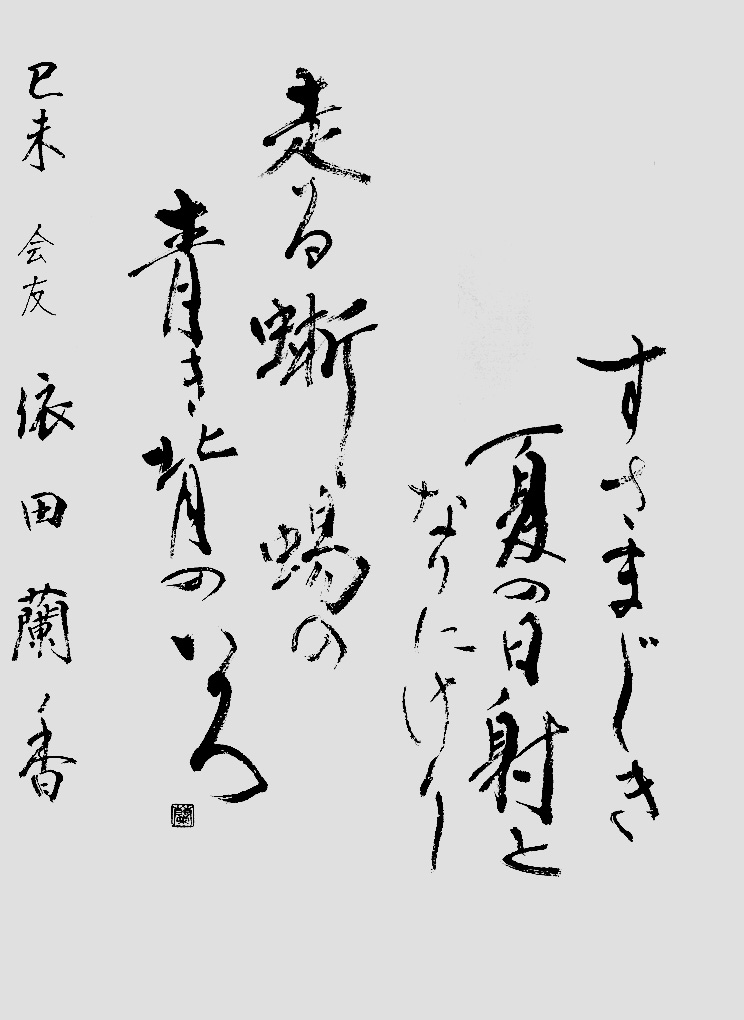 すさまじき
夏の日射と
なりにけり
走る蜥蜴の
青き背のいろ
己未 会友 依田蘭香
蘭